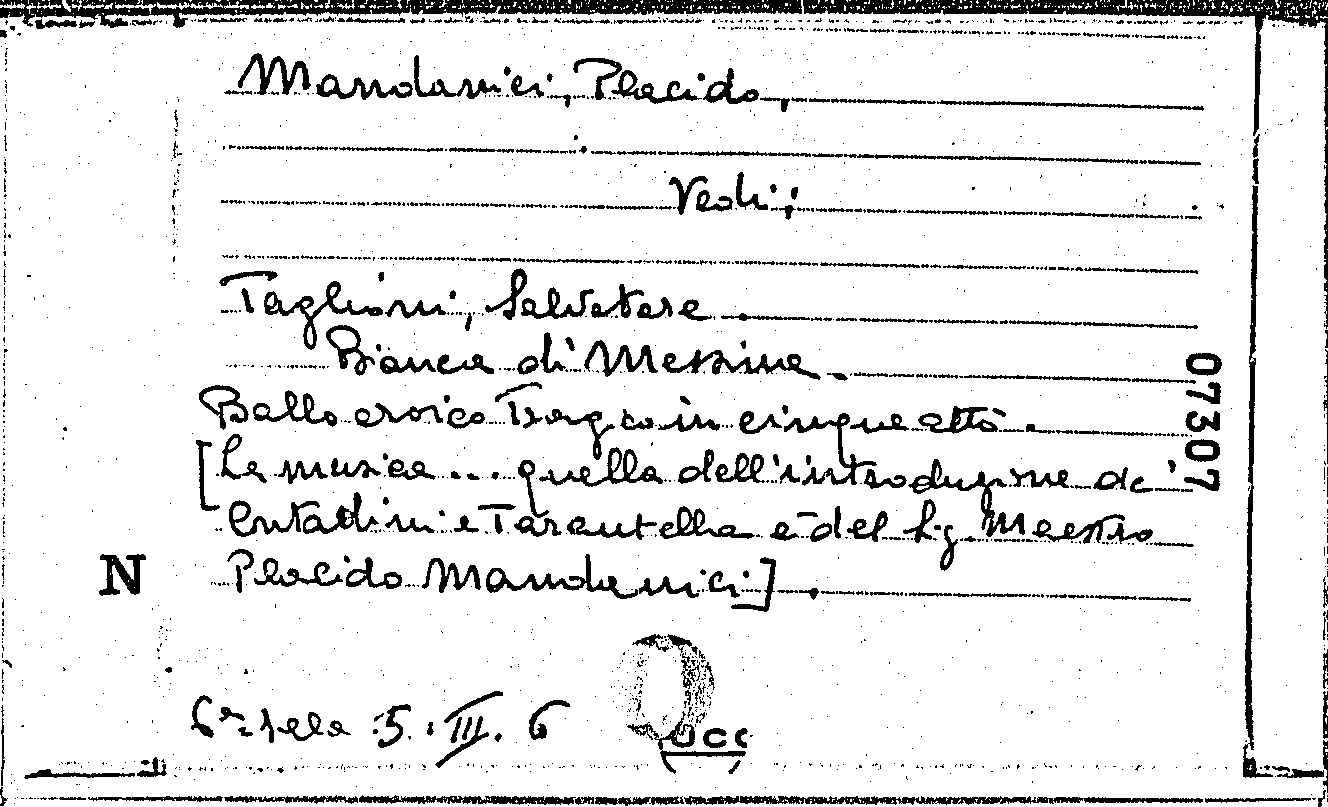 Mandanici, Placido,
Vedi:
Taglioni, Salvatore.
Bianca di Messina.
Ballo eroico Tragico in cinque atti.
[La musica... quella dell'introduzione de'
Contadini e Tarantella è del Sig. Maestro
N Placido Mandanici].
6a sala 5. III. 6
UCC
07307